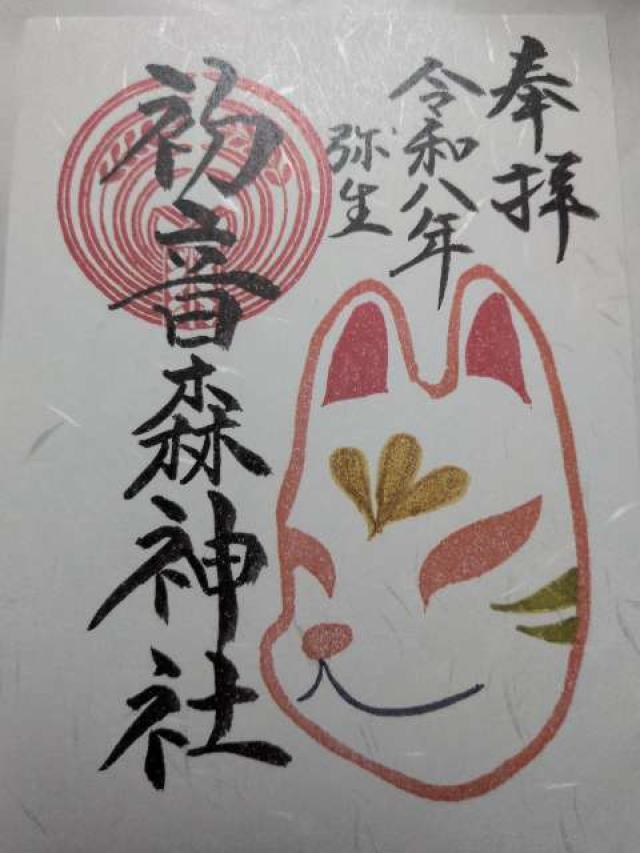 奉拝
令和八年
弥生
初音森神社